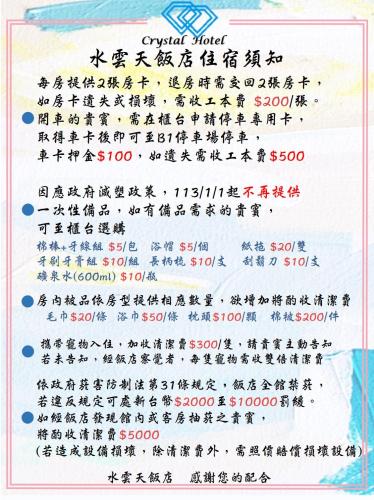 Crystal Hotel
水雲天飯店住宿須知
每房提供2張房卡,退房時需交回2張房卡,
如房卡遺失或損壞,需收工本費 $200/張。
●開車的貴賓,需在櫃台申請停車專用卡,
取得車卡後即可至B1停車場停車,
車卡押金$100,如遺失需收工本費$500
因應政府減塑政策,113/1/1起不再提供
●一次性備品,如有備品需求的貴賓,
可至櫃台選購
棉棒+牙線組 $5/包 浴帽 $5/個 紙拖 $20/雙
牙刷牙膏組 $10/組 長柄梳 $10/支 刮鬍刀 $10/支
礦泉水(600ml) $10/瓶
●房內被品依房型提供相應數量,欲增加將酌收清潔費
毛巾$20/條 浴巾$50/條 枕頭$100/顆 棉被$200/件
●攜帶寵物入住,加收清潔費$300/隻,請貴賓主動告知
若未告知,經飯店察覺者,每隻寵物需收雙倍清潔費
依政府菸害防制法第31條規定,飯店全館禁菸,
若違反規定可處新台幣$2000至$10000罰緩。
●如經飯店發現館內或客房抽菸之貴賓,
將酌收清潔費$5000
(若造成設備損壞,除清潔費外,需照價賠償損壞設備)
水雲天飯店 感謝您的配合